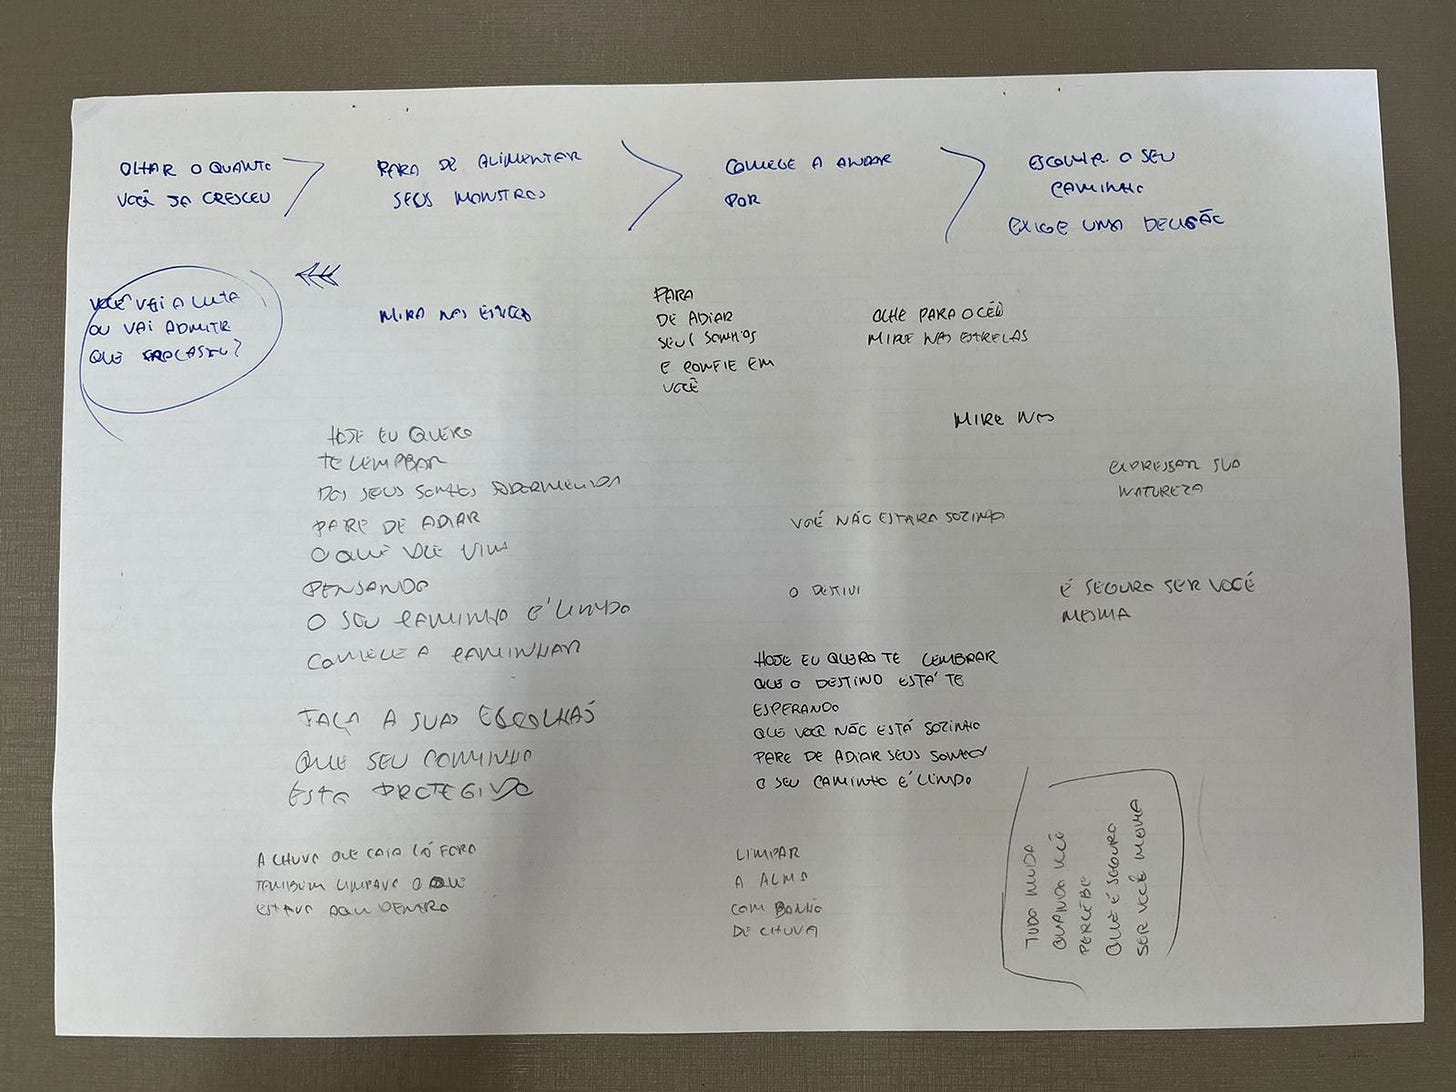 OLHAR O QUANTO
VOCÊ JA CRESCEU
PARA DE ALIMENTAR
SEUS MONSTROS
COMECE A ANDAR
POR
ESCOLHER O SEU
CAMINHO
EXIGE UMA DECISÃO
VOCÊ VAI A LUTA
OU VAI ADMITIR
QUE
MIRA NAS
PARA
DE ADIAR
SEUS SONHOS
E CONFIE EM
VOCÊ
OLHE PARA O CÉU
MIRE NAS ESTRELAS
MIRE NAS
EXPRESSAR SUA
NATUREZA
HOJE EU QUERO
TE LEMBRAR
DOS SEUS SONHOS ADORMECIDOS
PARE DE ADIAR
O QUE VOCÊ VIVE
PENSANDO
O SEU CAMINHO É LINDO
COMECE A CAMINHAR
VOCÊ NÃO ESTARA SOZINHO
O DESTINI
É SEGURO SER VOCÊ
MESMA
FAÇA A SUAS ESCOLHAS
QUE SEU CAMINHO
ESTA PROTEGIDO
HOJE EU QUERO TE LEMBRAR
QUE O DESTINO ESTÁ TE
ESPERANDO
QUE VOCÊ NÃO ESTÁ SOZINHO
PARE DE ADIAR SEUS SONHOS
O SEU CAMINHO É LINDO
A CHUVA QUE CAIA LÁ FORA
TAMBEM LIMPAVA O QUE
ESTAVA AQUI DENTRO
LIMPAR
A ALMA
COM BANHO
DE CHUVA
TUDO MUDA
QUANDO VOCÊ
PERCEBE
QUE É SEGURO
SER VOCÊ MESMA